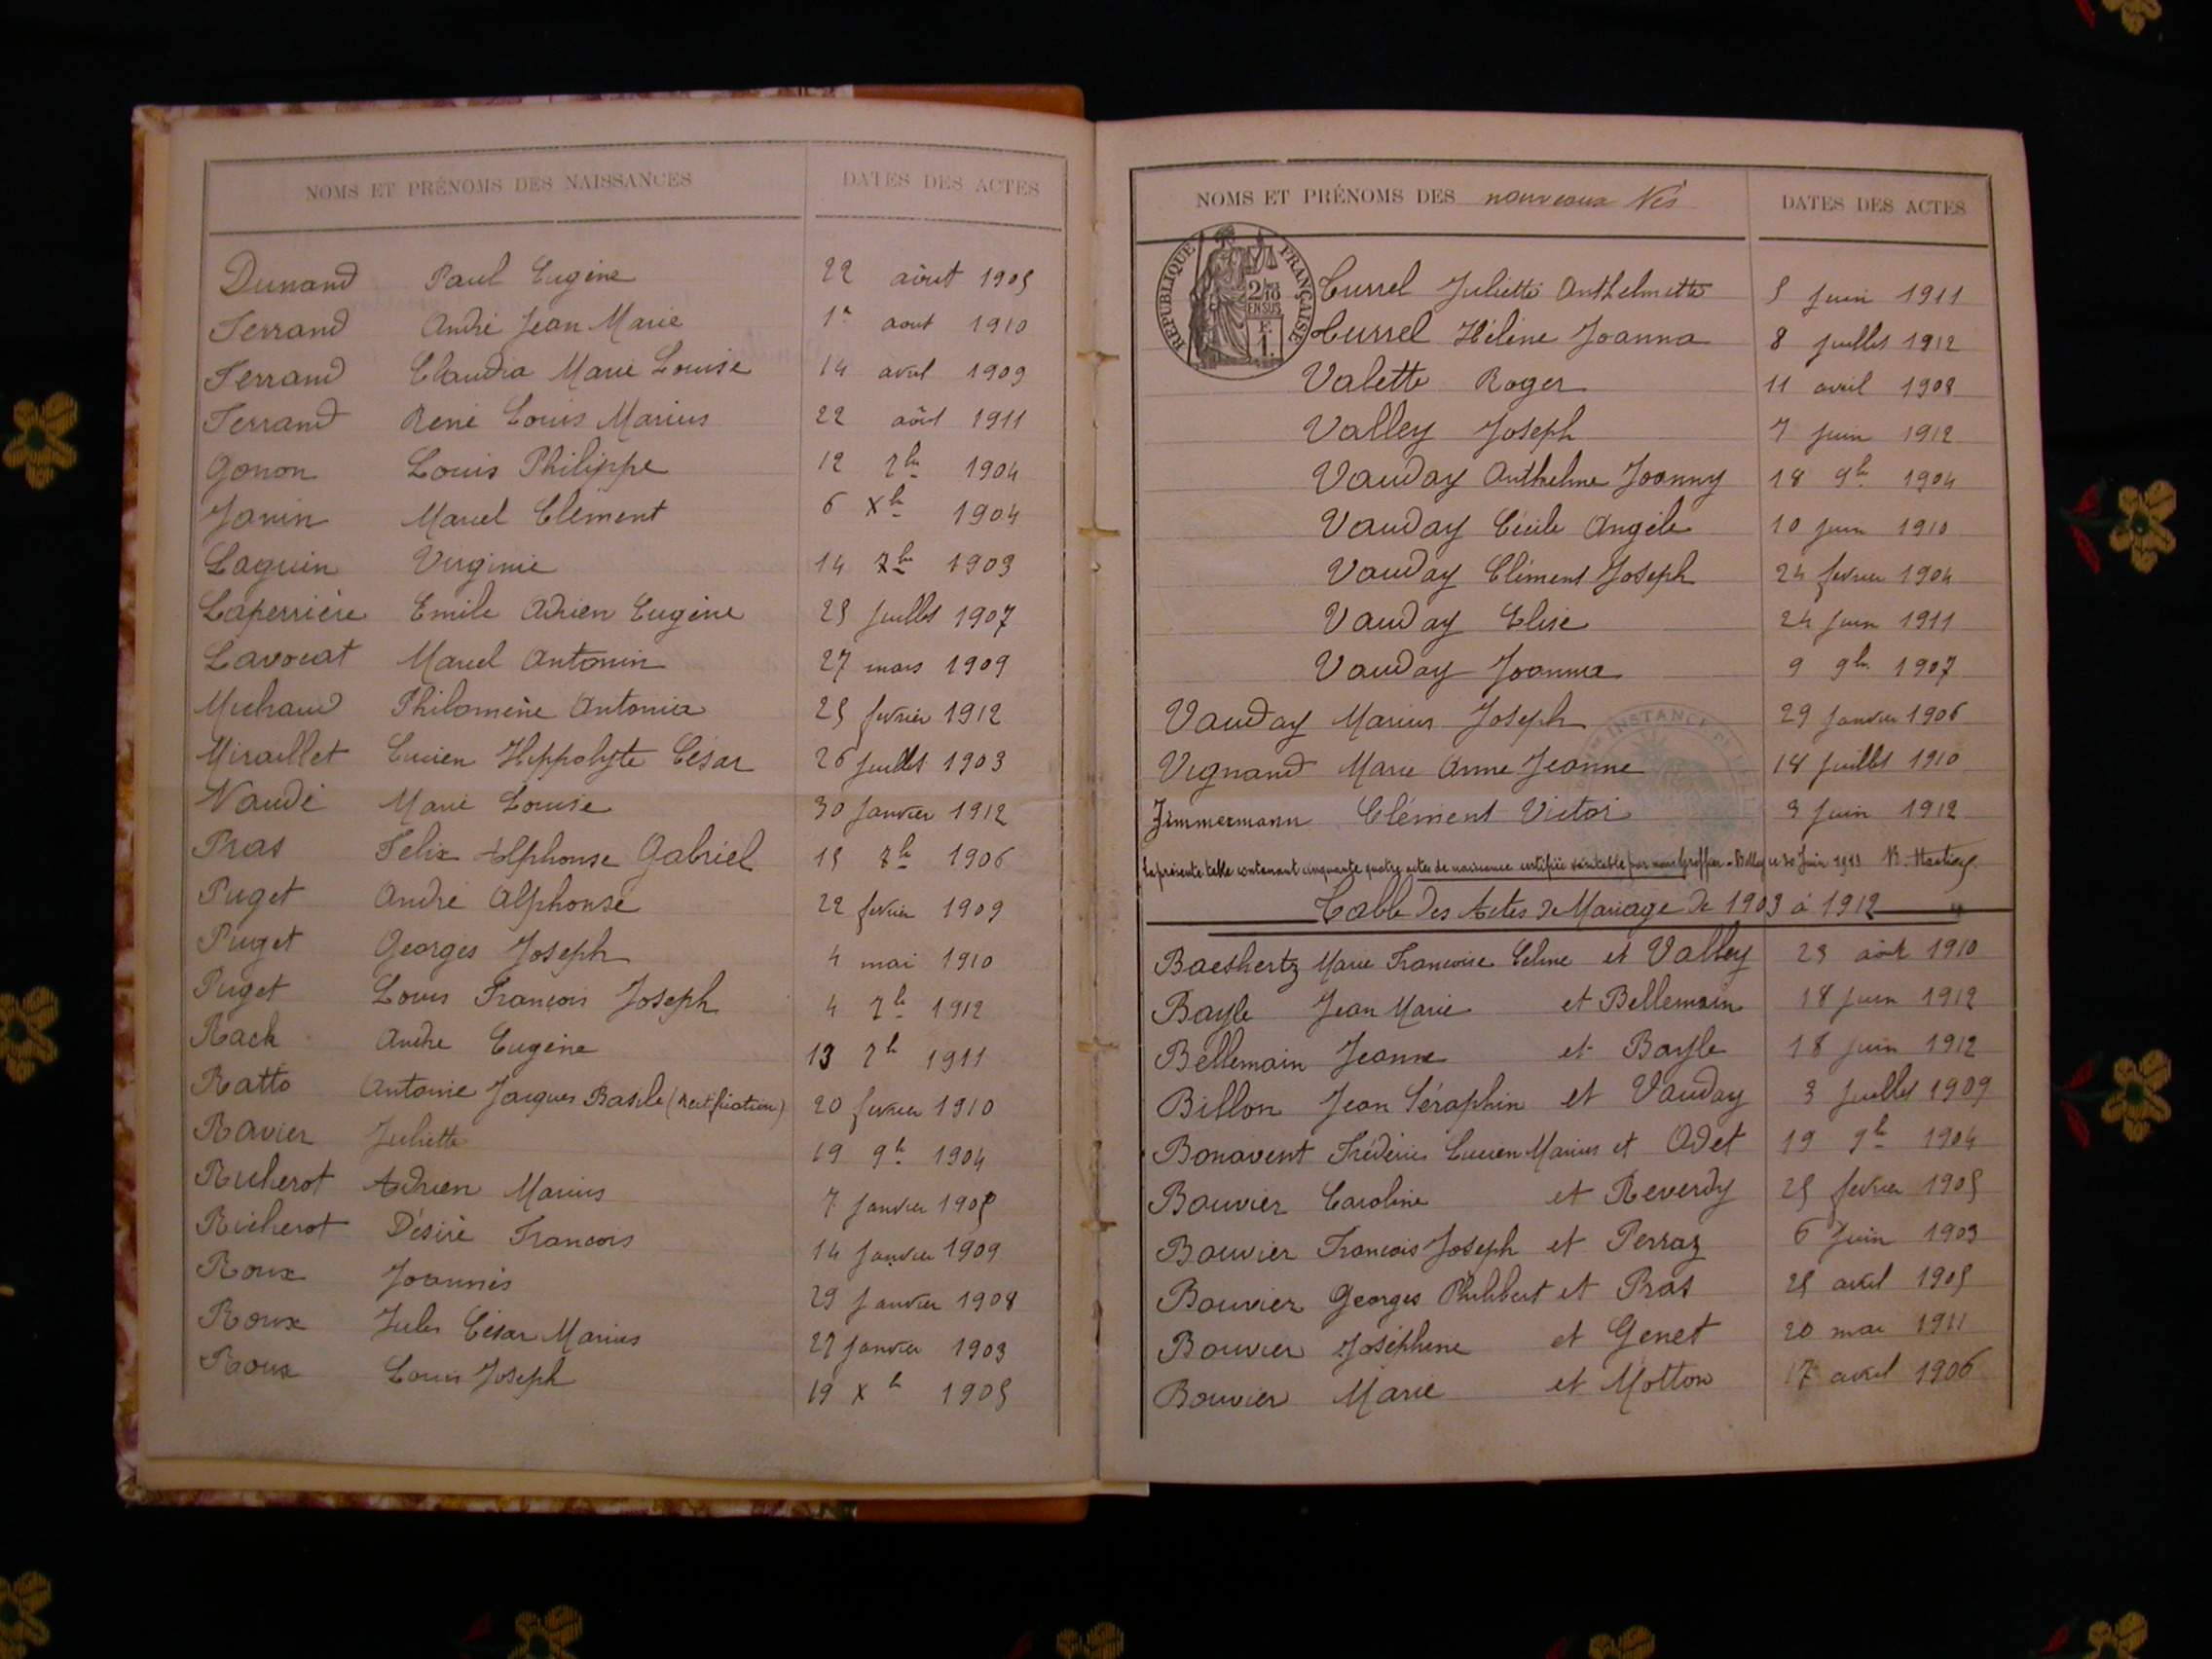 NOMS ET PRÉNOMS DES NAISSANCES DATES DES ACTES
Dunand Paul Eugène 22 aôut 1905
Ferrand André Jean Marie 1er aout 1910
Ferrand Claudia Marie Louise 14 avril 1909
Ferrand René Louis Marius 22 aôut 1911
Gonon Louis Philippe 12 7bre 1904
Janin Marcel Clément 6 Xbre 1904
Laguin Virginie 14 7bre 1903
Laperrière Emile Adrien Eugène 25 Juillet 1907
Lavocat Marcel Antonin 27 mars 1909
Michaud Philomène Antonia 25 fevrier 1912
Miraillet Lucien Hippolyte César 26 Juillet 1903
Naudé Marie Louise 30 Janvier 1912
Pras Felix Alphonse Gabriel 15 7bre 1906
Puget André Alphonse 22 fevrier 1909
Puget Georges Joseph 4 mai 1910
Puget Louis François Joseph 4 7bre 1912
Rack Andre Eugène 13 7bre 1911
Ratto Antoine Jacques Basile (rectification) 20 fevrier 1910
Ravier Juliette 19 9bre 1904
Richerot Adrien Marius 7 Janvier
Richerot Désiré Francois 14 Janvier 1909
Roux Joannès 29 Janvier 1908
Roux Jules César Marius 27 Janvier 1903
Roux Louis Joseph 19 Xbre 1905
NOMS ET PRÉNOMS DES nouveaux Nés DATES DES ACTES
RÉPUBLIQUE FRANÇAISE
2/10 EN SUS
F. 1.
Turrel Juliette Anthelmette 5 Juin 1911
Turrel Hélène Joanna 8 Juillet 1912
Valette Roger 11 avril 1908
Valley Joseph 7 Juin 1912
Vauday Anthelme Joanny 18 9bre 1904
Vauday Cécile Angèle 10 Juin 1910
Vauday Clément Joseph 24 fevrier 1904
Vauday Elise 24 Juin 1911
Vauday Joanna 9 9bre 1907
Vauday Marius Joseph 29 Janvier 1906
Vignand Marie Anne Jeanne 18 Juillet 1910
INSTANCE
Zimmermann Clément Victor 3 Juin 1912
La présente table contenant cinquante quatre actes de naissance certifiée véritable par nous Greffier. Belley ce 30 Juin 1913
Table des Actes de Mariage de 1903 à 1912
Baeshertz Marie Francoise Celine et Valley 23 aôut 1910
Bayle Jean Marie et Bellemain 18 Juin 1912
Bellemain Jeanne et Bayle 18 Juin 1912
Billon Jean Séraphin et Vauday 3 Juillet 1909
Bonavent Frédéric Lucien Marius et Odet 19 9bre 1904
Bouvier Caroline et Reverdy 25 fevrier 1905
Bouvier François Joseph et Perraz 6 Juin 1903
Bouvier Georges Philibert et Pras 25 avril 1905
Bouvier Joséphine et Genet 20 mai 1911
Bouvier Marie et Motton 17 avril 1906